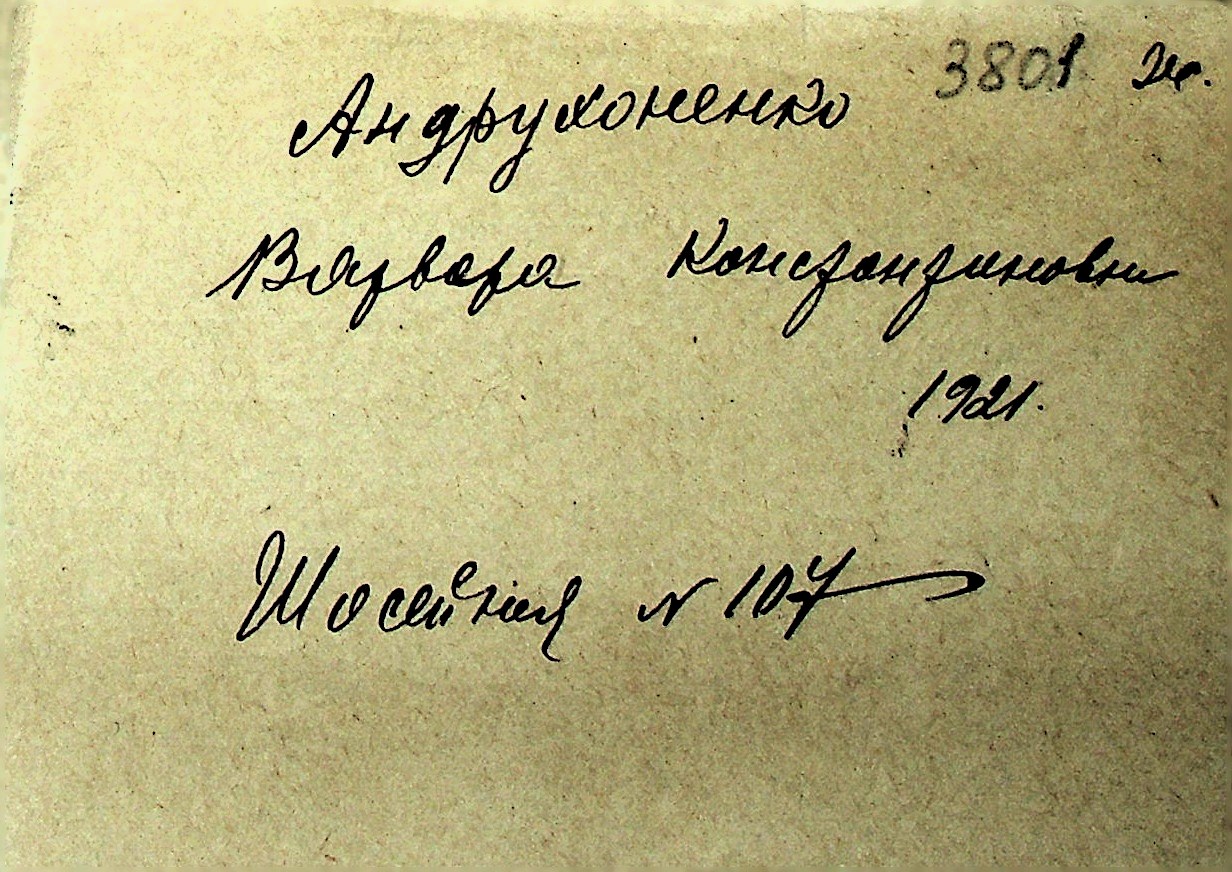 3801 Ж.
Андрухоненко
Варвара Константиновна
1921.
Шосейная № 107